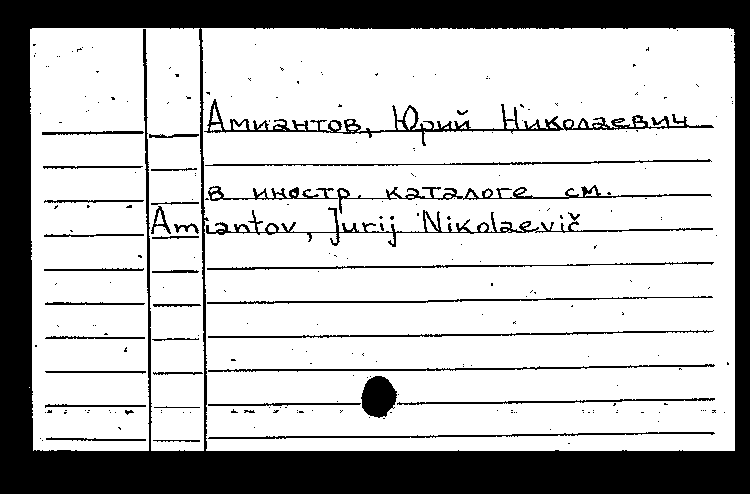 Амиантов, Юрий Николаевич
в иностр. каталоге см.
Amiantov, Jurij Nikolaevič